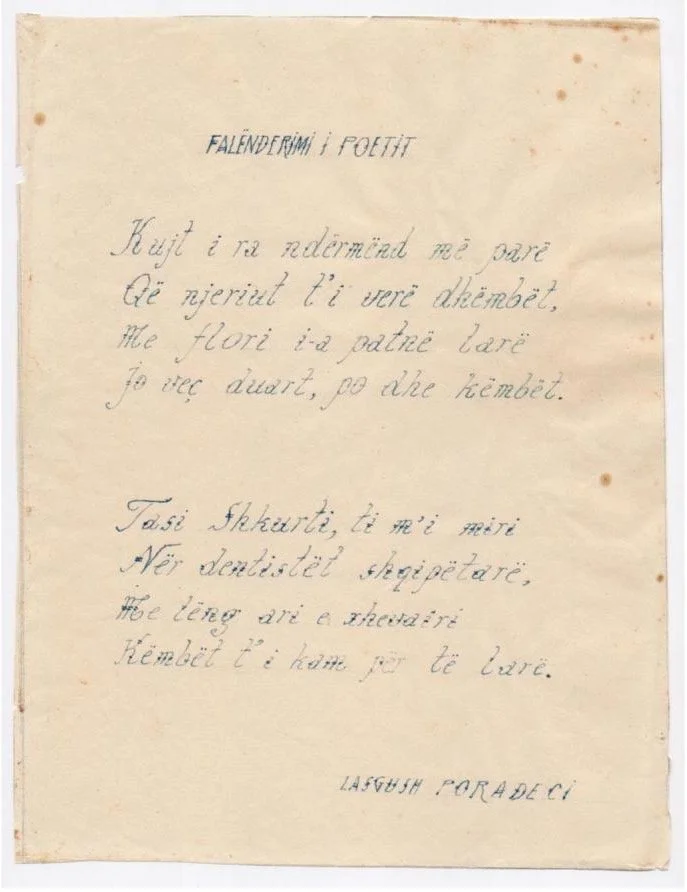 FALËNDERIMI I POETIT
Kujt i ra ndërmënd më parë
Që njeriut t'i verë dhëmbët,
Me flori i-a patnë larë
Jo veç duart, po dhe këmbët.
Tasi Shkurti, ti m'i miri
Nër dentistët shqipëtarë,
Me lëng ari e xhevairi
Këmbët t'i kam për të larë.
LASGUSH PORADECI